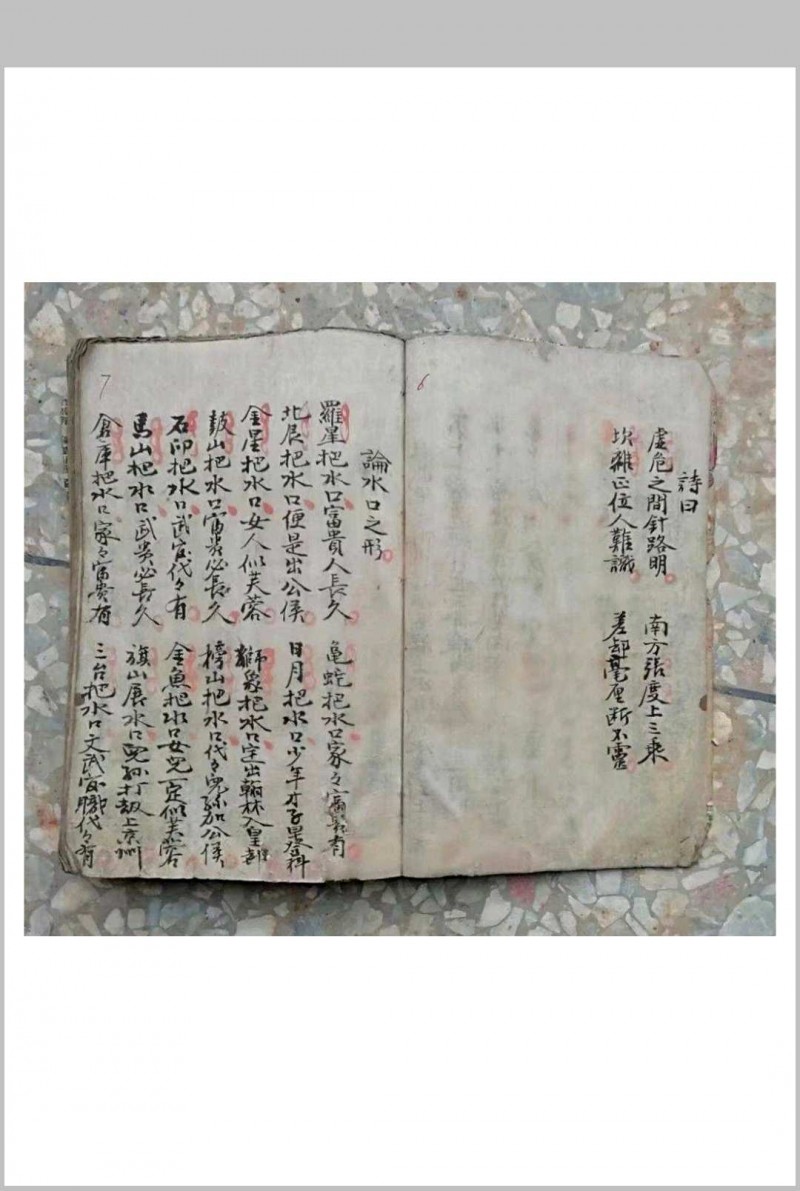 6
詩曰
虛危之間針路明 南方張度上三乘
坎離正位人難識 差却毫厘斷不靈
7
論水口之形
羅星把水口富貴人長久 亀蛇把水口家々富貴有
北辰把水口便是出公侯 日月把水口少年才子早登科
金星把水口女人似芙蓉 獅象把水口定出翰林入皇都
鼓山把水口富贵必長久 榜山把水口代々児孫加公侯
石印把水口武官代々有 金魚把水口女児一定似芙蓉
馬山把水口武贵必長久 旗山展水口児孙打刼上京州
倉庫把水口家々富貴有 三台把水口文武官職代々有